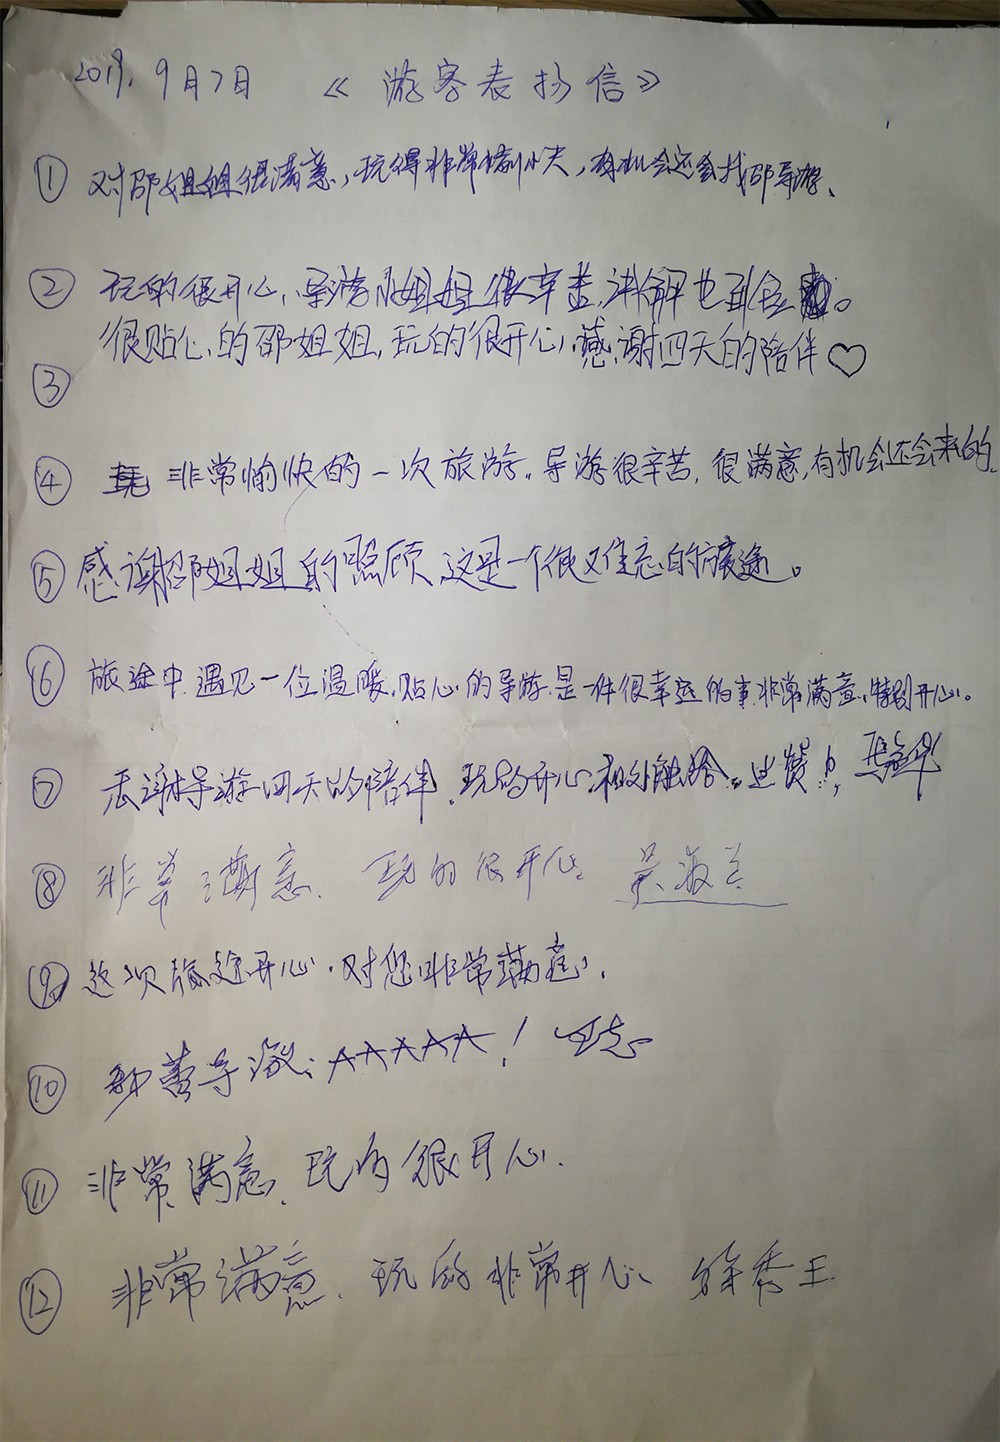 2019.9月7日 《游客表扬信》
① 对邵姐姐很满意，玩得非常愉快，有机会还会找邵导游、
② 玩的很开心、导游小姐姐很辛苦，讲解也到位。
很贴心的邵姐姐，玩的很开心，感谢四天的陪伴♡
③
④ 非常愉快的一次旅游。导游很辛苦，很满意，有机会还会来的.
⑤ 感谢邵姐姐的照顾，这是一个很难忘的旅途。
⑥ 旅途中遇见一位温暖，贴心的导游是一件很幸运的事非常满意，特别开心。
⑦ 感谢导游四天的陪伴，玩的开心相处融洽。点赞！
⑧ 非常满意、玩的很开心。吴
⑨ 这次旅途开心，对您非常满意，
⑩ 导游：AAAAA！
⑪ 非常满意、玩的很开心.
⑫ 非常满意、玩的非常开心、徐秀玉